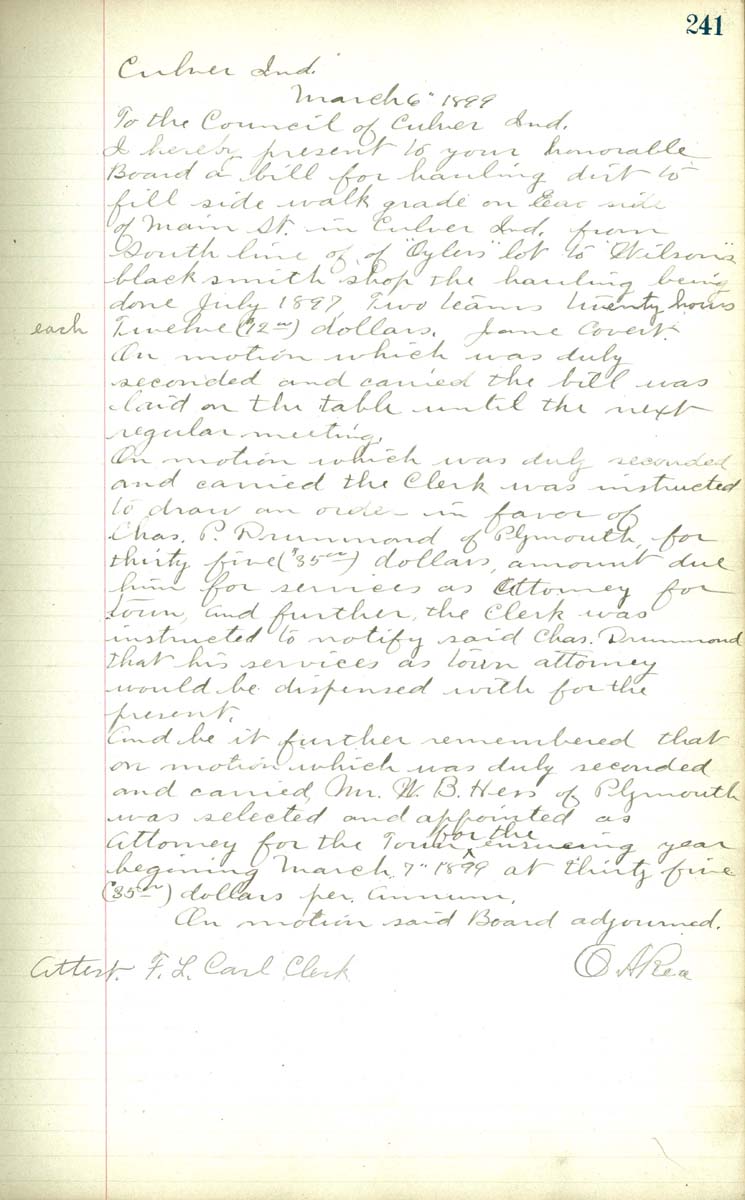 241
Culver Ind.
March 6" 1899
To the Council of Culver Ind.
I hereby present to your honorable
Board a bill for hauling dirt to
fill side walk grade on East side
of Main St. in Culver Ind. from
South line of of "Oylers" lot to "Wilson's"
blacksmith shop the hauling being
done July 1897, Two teams twenty hours
each Twelve ($12 00) dollars. Jane Covert.
On motion which was duly
seconded and carried the bill was
laid on the table until the next
regular meeting.
On motion which was duly seconded
and carried the Clerk was instructed
to draw an order in favor of
Chas. P. Drummond of Plymouth, for
thirty five ($35 00) dollars, amount due
him for services as Attorney for
town, and further, the Clerk was
instructed to notify said Chas. Drummond
that his services as town attorney
would be dispensed with for the
present.
And be it further remembered that
on motion which was duly seconded
and carried, Mr. W. B. Hess of Plymouth
was selected and appointed as
Attorney for the Town for the ensueing year
begining March 7" 1899 at thirty five
($35 00) dollars per. annum.
On motion said Board adjourned.
Attest. F. L. Carl Clerk O A Rea